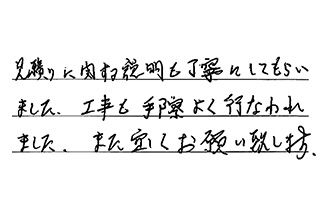 見積りに関する説明も丁寧にしてもらい
ました。工事も手際よく行なわれ
ました。また宜しくお願い致します。